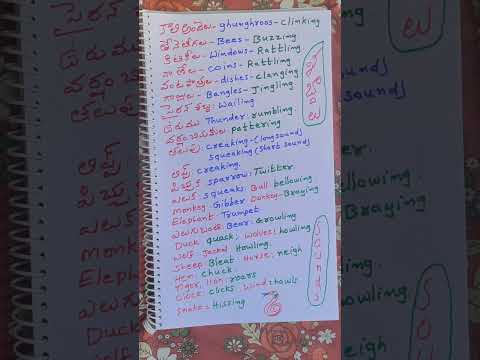 కాలిఅందెలు- ghunghroos - clinking
తేనెటీగలు - Bees - Buzzing
కిటికీలు - Windows - Rattling
నాణేలు - coins - Rattling
వంటపాత్రలు - dishes - clanging
గాజులు - Bangles - Jingling
సైరన్ శబ్దం - Wailing
ఉరుము Thunder: rumbling.
వర్షంచినుకులు pattering
తలుపులు creaking - (long sound)
squeaking (short sound)
లిఫ్ట్. creaking.
పిచ్చుక sparrow: Twitter
ఎలుక squeaks. Bull: bellowing
monkey: Gibber Donkey - Braying
Elephant: Trumpet
ఎలుగుబంటి: Bear: Growling
Duck quask; Wolves: howling
Jackal Howling.
Sheep Bleat Horse: neigh
Hen: chuck.
Tiger, lion: roars
Clock: clicks, Wind: howls
Snake = Hissing
శబ్దాలు
Sounds